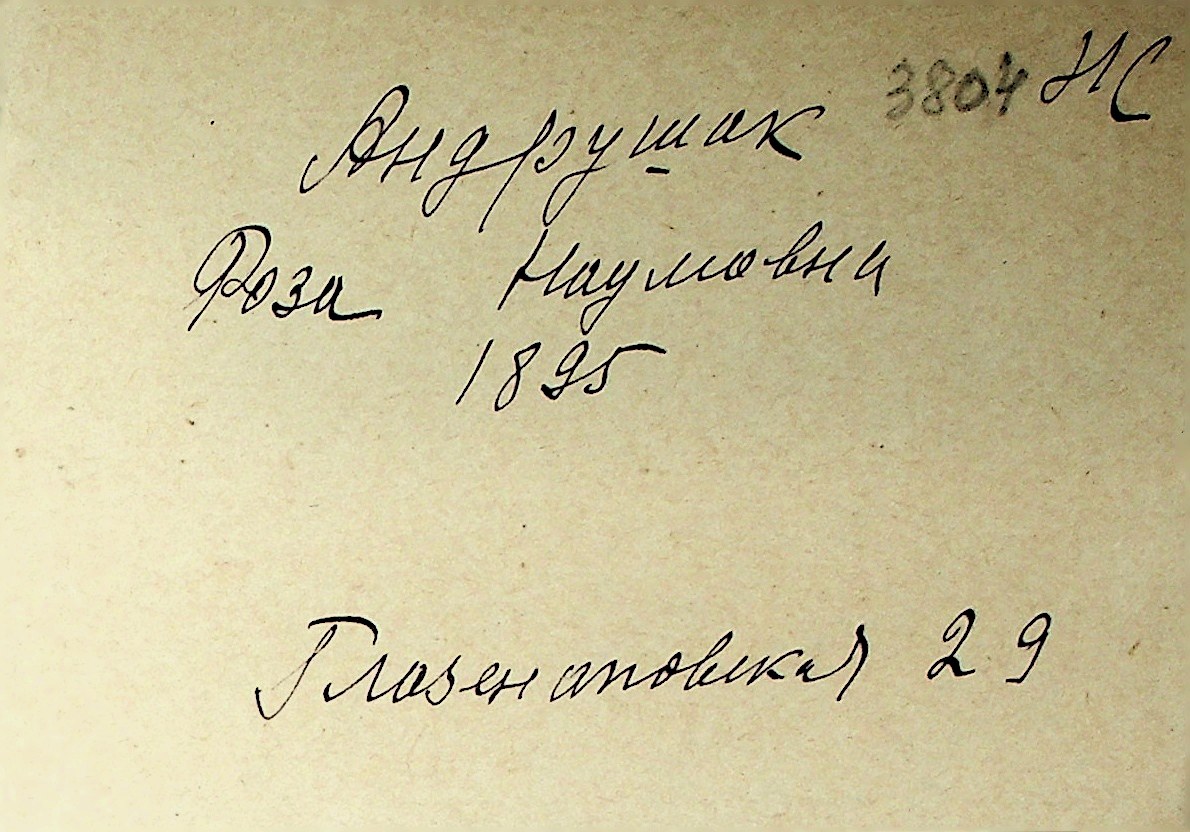 3804 НС
Андрушак
Роза Наумовна
1895
Глазенаповская 29